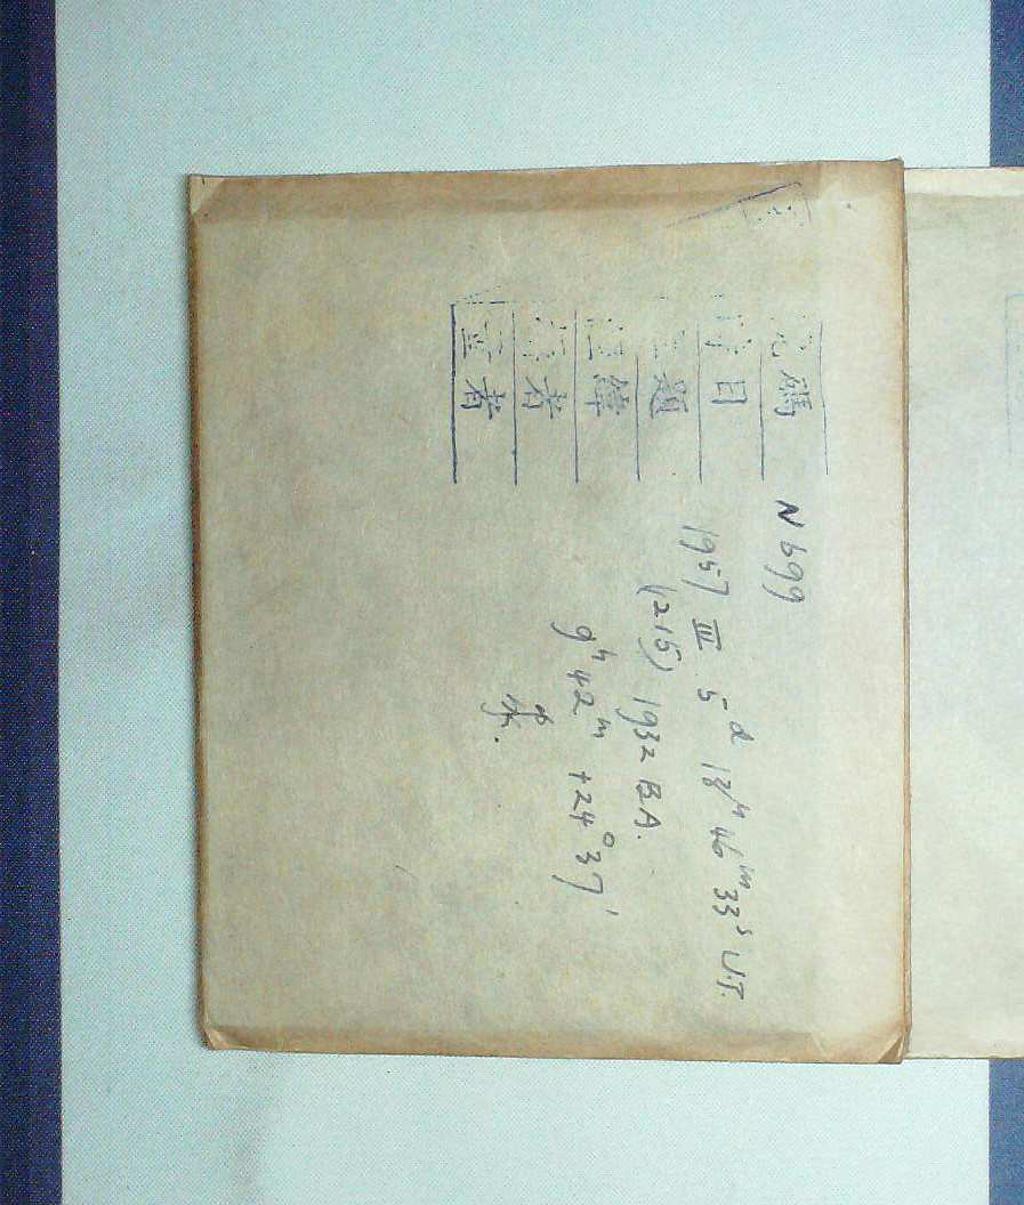 碼 N 699
日 1957 III 5ᵈ 18ʰ 46ᵐ 33ˢ U.T.
題 (215) 1932 BA.
9ʰ 42ᵐ +24° 37'
者
者